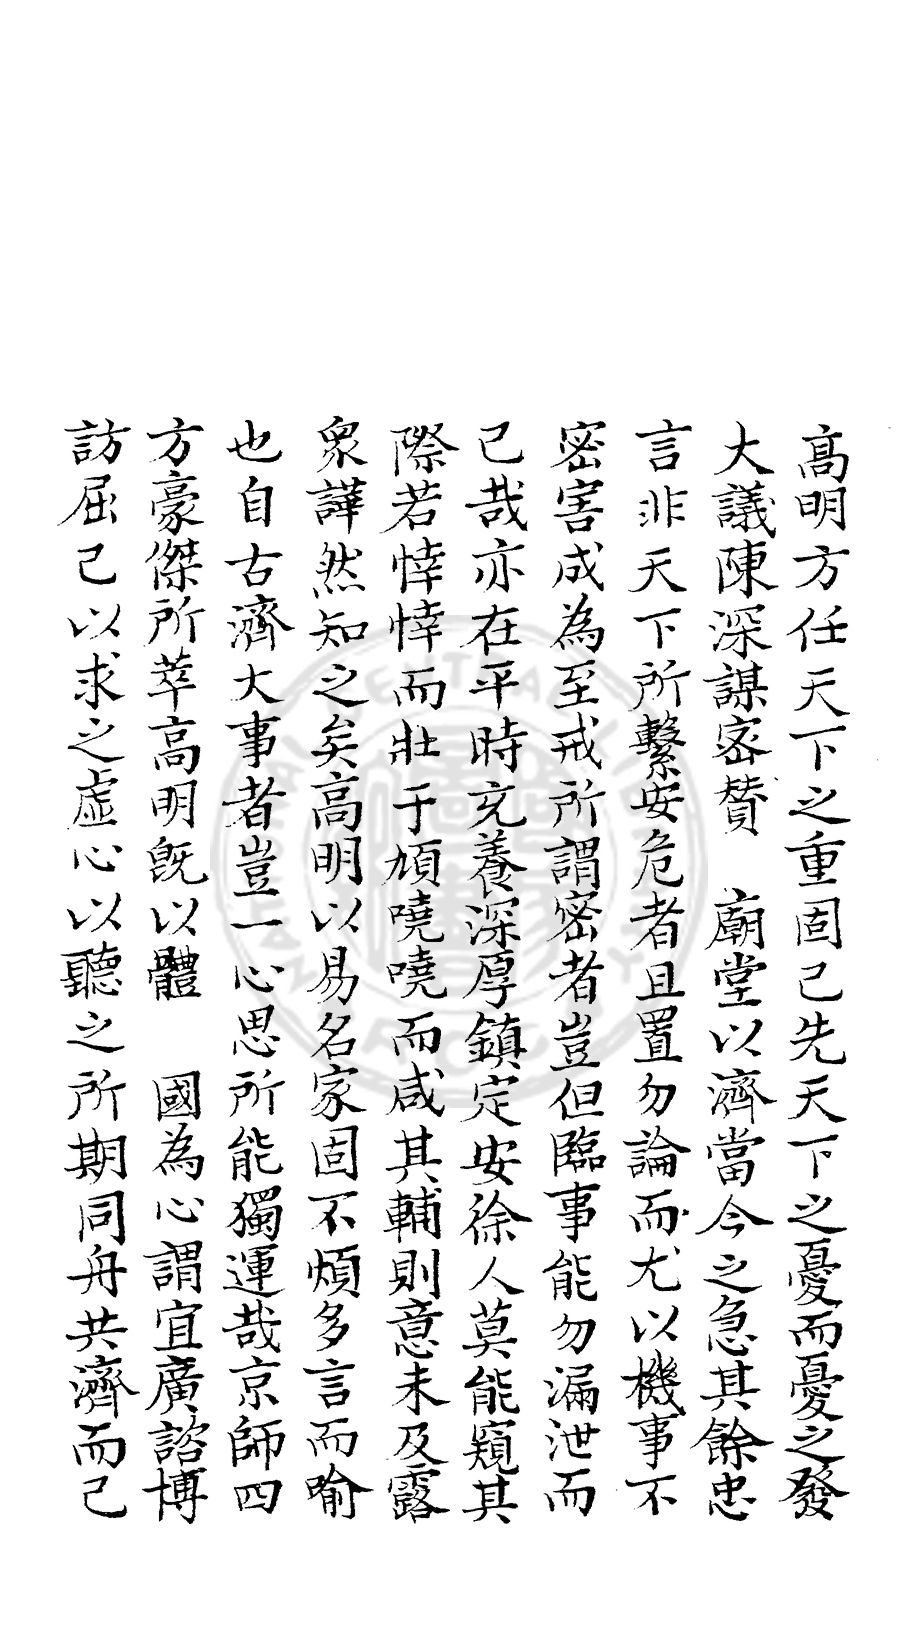 高明方任天下之重固己先天下之憂而憂之發
大議陳深謀密贊　廟堂以濟當今之急其餘忠
言非天下所繫安危者且置勿論而尤以機事不
密害成為至戒所謂密者豈但臨事能勿漏泄而
己哉亦在平時充養深厚鎮定安徐人莫能窺其
際若悻悻而壯于頄嘵嘵而咸其輔則意未及露
衆譁然知之矣高明以易名家固不煩多言而喻
也自古濟大事者豈一心思所能獨運哉京師四
方豪傑所萃高明旣以體　國為心謂宜廣諮博
訪屈己以求之虛心以聽之所期同舟共濟而己